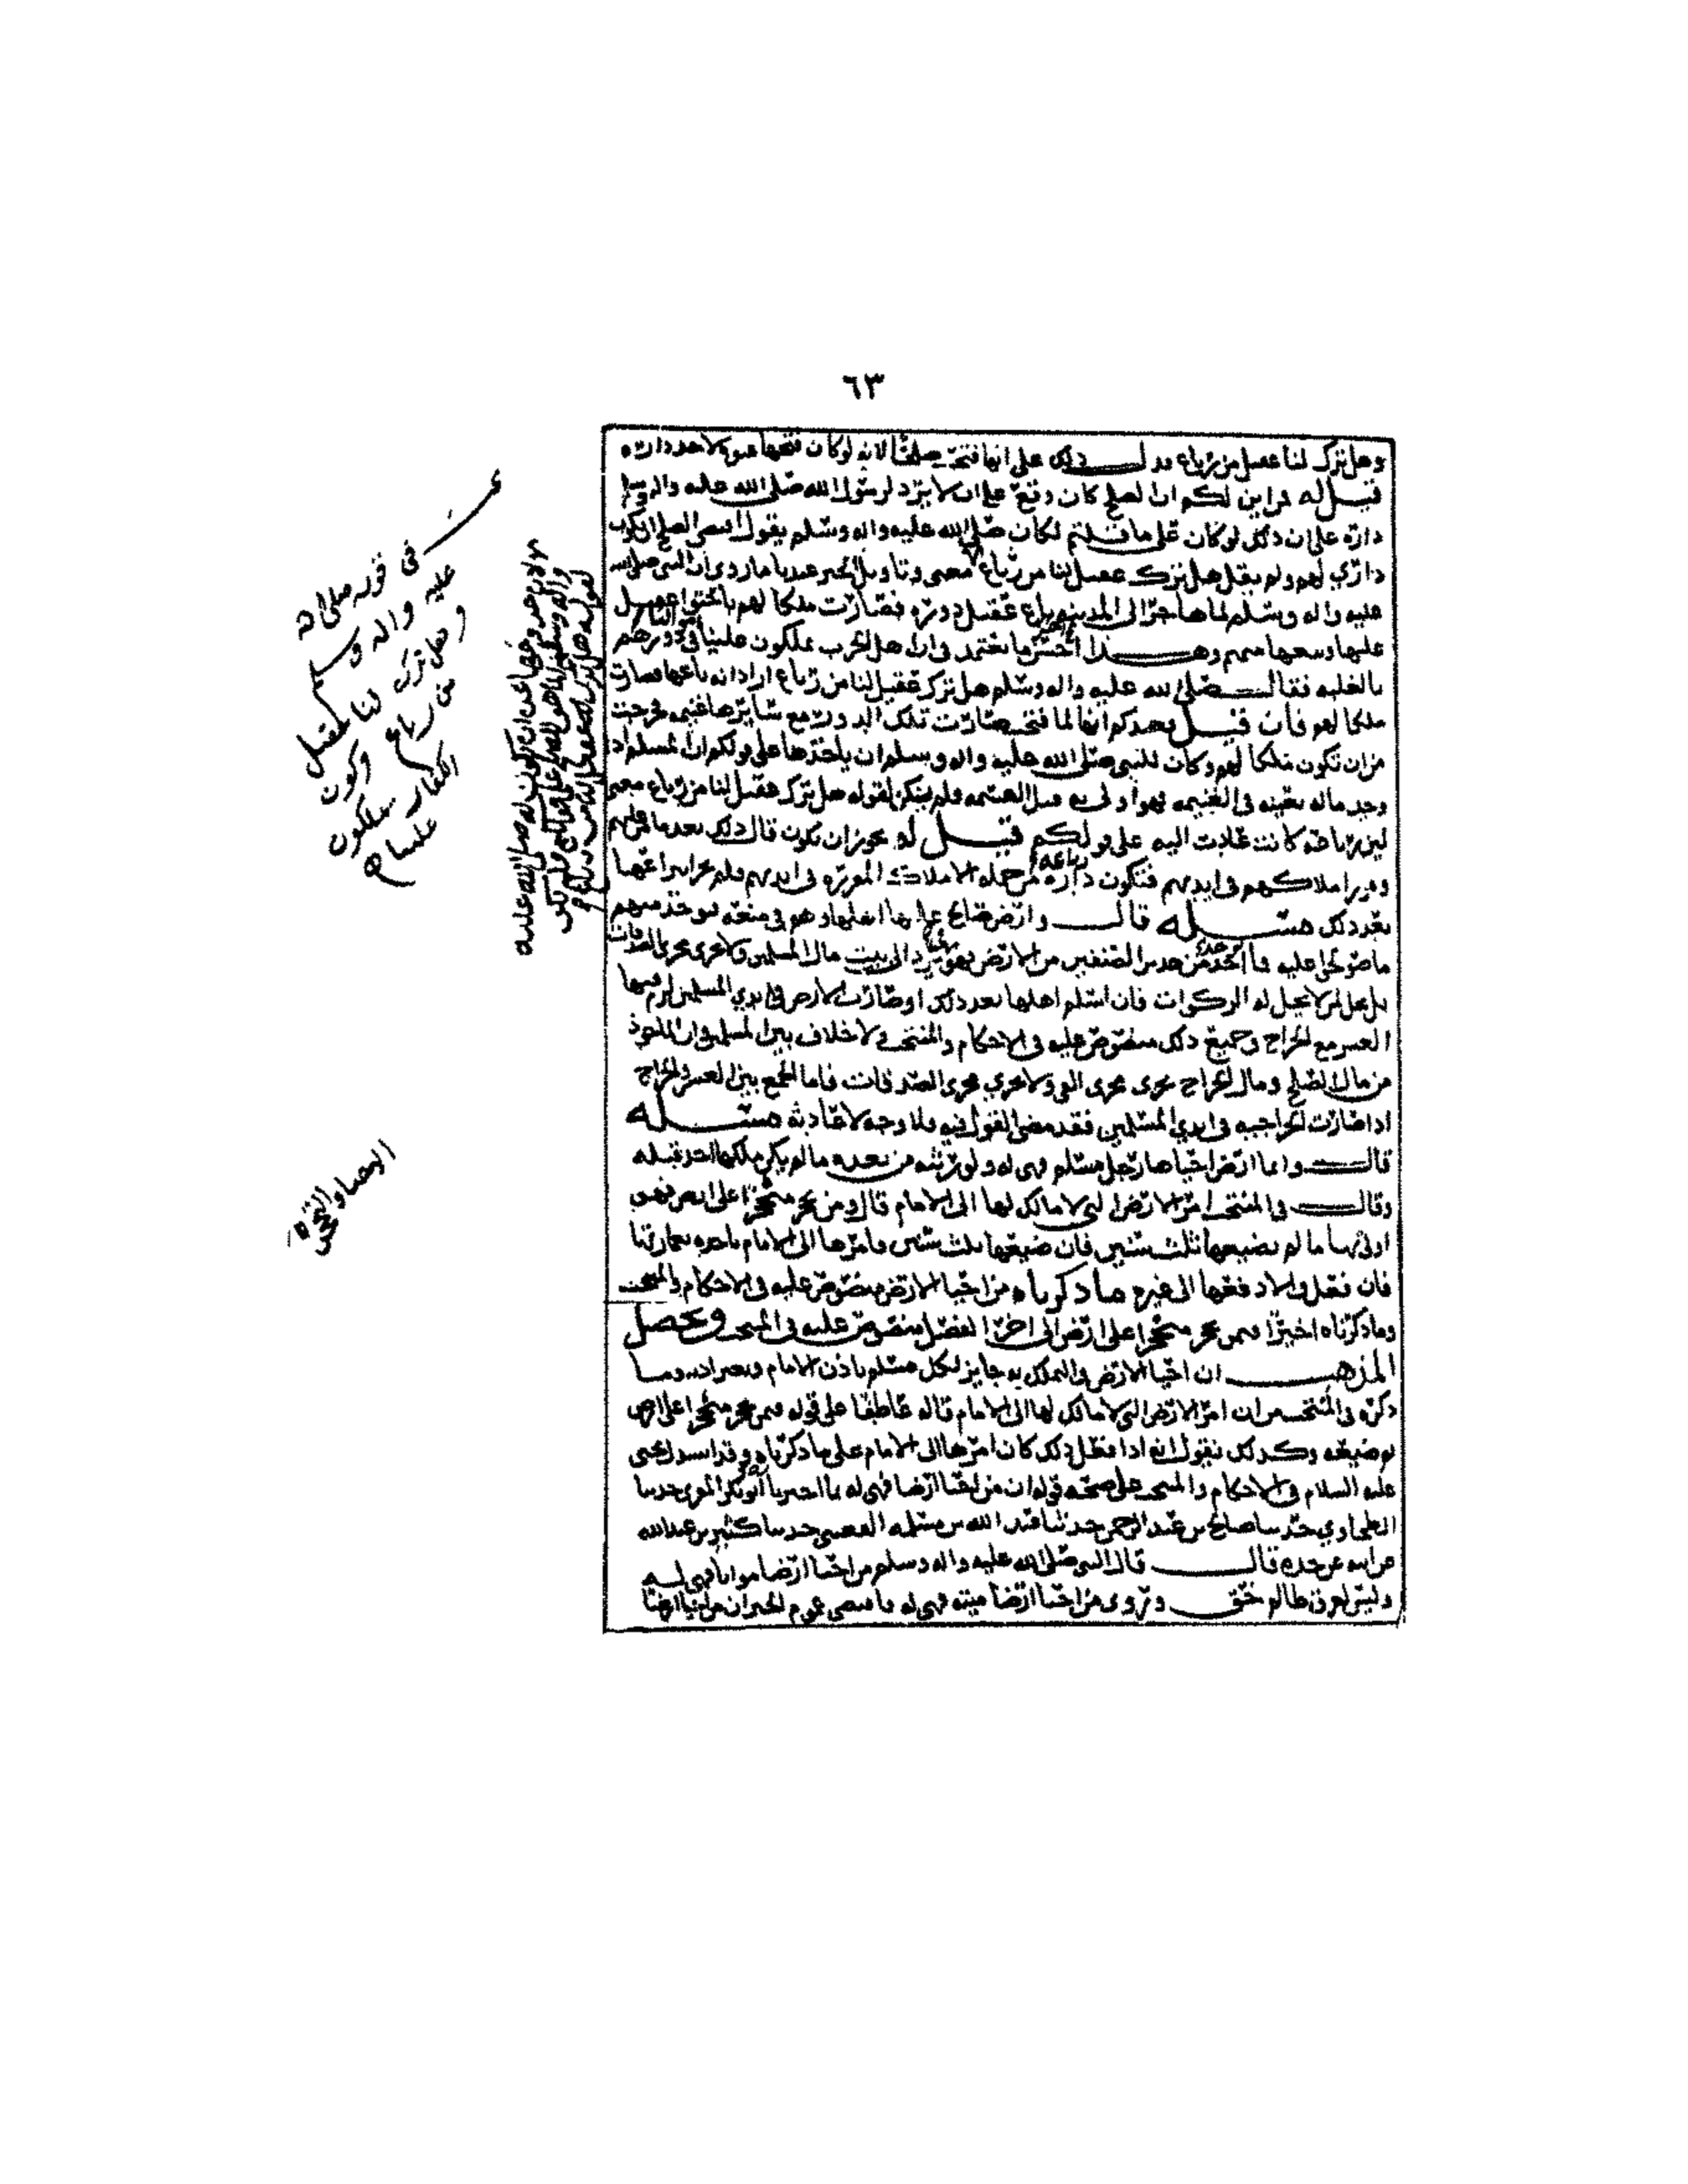 ٦٣
وهل ترك لنا عقيل من رباع ودل ذلك على انها فتحت صلحًا لانه لو كان فتحها عنوة لاخذ داره
قيل له من اين لكم ان الصلح كان وقع على ان لا يرد لرسول الله صلى الله عليه واله وسلم
داره على ان ذلك لو كان على ما قلتم لكان صلى الله عليه واله وسلم يقول اقتضى الصلح ان يكون
داري لهم ولم يقل هل ترك عقيل لنا من رباع معنى وتاويل الخبر عندنا ما روي ان النبي صلى الله
عليه واله وسلم لما هاجر الى المدينه باع عقيل دوره فصارت ملكا لهم باحتوا عقيل
عليها وبيعها منهم وهذا احسن ما يعتمد في ان اهل الحرب يملكون علينا في دورهم
بالغلبه فقال صلى الله عليه واله وسلم هل ترك عقيل لنا من رباع اراد انه باعها فصارت
ملكا لهم فان قيل بعدكم انها لما فتحت صارت تلك الدور مع سايرها غنيمه فخرجت
من ان تكون ملكا لهم وكان للنبي صلى الله عليه واله وسلم ان ياخذها على قولكم ان المسلم اذا
وجد ماله بعينه في الغنيمه فهو اولى به قبل القسمه فلم يكن لقوله هل ترك عقيل لنا من رباع معنى
لان رباعه كانت عادت اليه على قولكم قيل له يجوز ان يكون قال ذلك بعد ما من عليهم
وقرر املاكهم في ايديهم فتكون داره رباعه من جمله الاملاك المقرره في ايديهم ولم يجز انتزاعها
بعد ذلك مسئله قال وارض صالح عليها اهلها وهم في منعه فيوخذ منهم
ما صولحوا عليه فما اخذ من هذين الصنفين من الارض فهو يرد الى بيت مال المسلمين ولا يجري مجرى الصدقات
بل يحل لمن لا يحل له الزكوات فان اسلم اهلها بعد ذلك او صارت الارض في ايدي المسلمين لزم فيها
العشر مع الخراج وجميع ذلك منصوص عليه في الاحكام والمنتخب ولا خلاف بين المسلمين ان الماخوذ
من مال الصلح ومال الخراج يجرى مجرى الفي ولا يجري مجرى الصدقات فاما الجمع بين العشر والخراج
اذا صارت الخراجيه في ايدي المسلمين فقد مضى القول فيه فلا وجه لاعادته مسئله
قال وايما ارض احياها رجل مسلم فهي له ولورثته من بعده ما لم يكن ملكها احد قبله
وقال في المنتخب امر الارض التي لا مالك لها الى الامام قال ومن تحجر متحجرا على ارض فهو
اولى بها ما لم يضيعها ثلث سنين فان ضيعها ثلث سنين فامرها الى الامام ياخذه بعمارتها
فان فعل والا دفعها الى غيره ما ذكرناه من احيا الارض منصوص عليه في الاحكام والمنتخب
وما ذكرناه اخيرًا فيمن تحجر متحجرا على ارض الى اخر الفصل منصوص عليه في المنتخب وتحصيل
المذهب ان احيا الارض والتملك به جايز لكل مسلم باذن الامام وبغير اذنه وما
ذكره في المنتخب من ان امر الارض التي لا مالك لها الى الامام قاله عاطفا على قوله فيمن تحجر متحجرا على ارض
ثم ضيعه وكذلك نقول انه اذا فعل ذلك كان امرها الى الامام على ما ذكرناه وقد استدل يحيى
عليه السلام في الاحكام والمنتخب على صحة قوله ان من احيا ارضا فهي له بما اخبرنا ابو بكر المقري حدثنا
الطحاوي حدثنا صالح بن عبد الرحمن حدثنا عبد الله بن مسلمه القعنبي حدثنا كثير بن عبد الله
عن ابيه عن جده قال قال النبي صلى الله عليه واله وسلم من احيا ارضا مواتا فهي له
وليس لعرق ظالم حق وروى من احيا ارضا ميته فهي له فاقتضى عموم الخبر ان من احيا ارضا
في قوله صلى الله
عليه واله وسلم
وهل ترك لنا عقيل
من رباع وكون
الكفار يملكون
علينا
الاحيا والتحجر